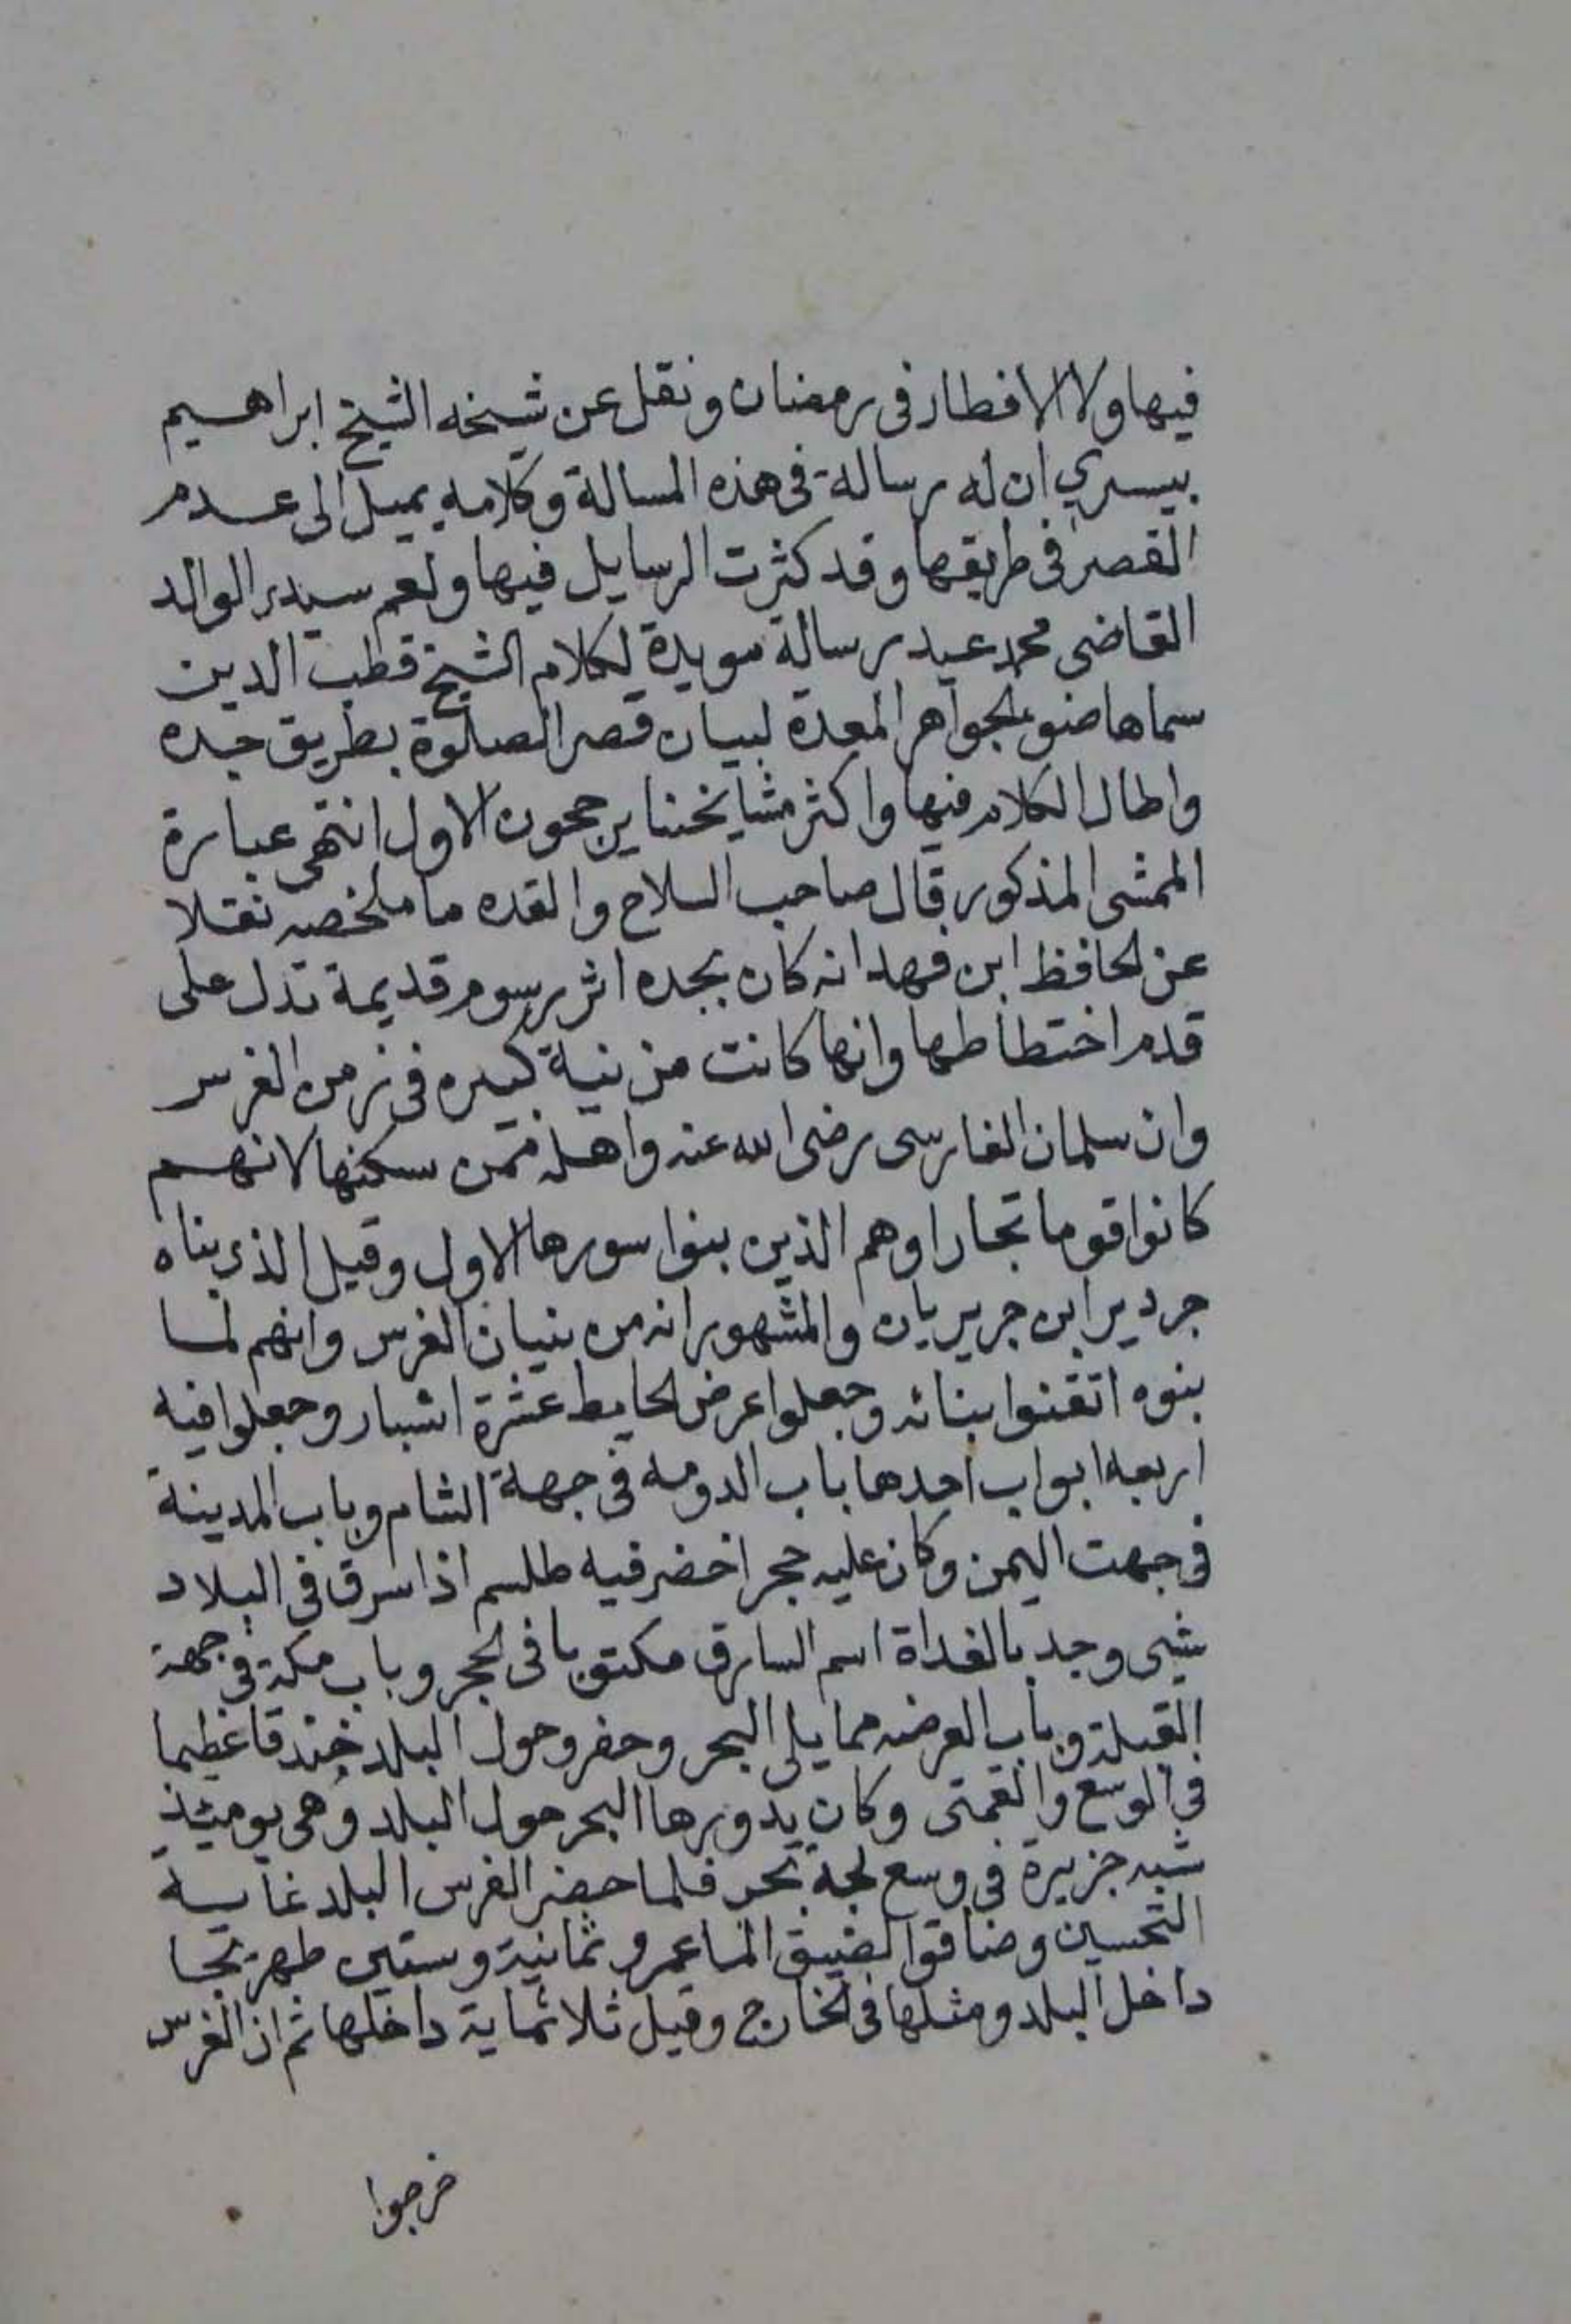 فيها ولا الافطار في رمضان ونقل عن شيخه الشيخ ابراهيم
بيسري ان له رسالة في هذه المسالة وكلامه يميل الى عدم
القصر في طريقها وقد كثرت الرسايل فيها ولعم سيدي الوالد
القاضي محمد عيد رسالة مويدة لكلام الشيخ قطب الدين
سماها ضوء الجواهر المعدة لبيان قصر الصلوة بطريق جده
واطال الكلام فيها واكثر مشايخنا يرجحون الاول انتهى عبارة
المحشى المذكور قال صاحب السلاح والقده ما ملخصه نقلا
عن الحافظ ابن فهد انه كان بجده اثر رسوم قديمة تدل على
قدم اختطاطها وانها كانت مزينة كبيره في زمن الفرس
وان سلمان الفارسى رضى الله عنه واهله ممن سكنها لانهم
كانوا قوما تجارا وهم الذين بنوا سورها الاول وقيل الذي بناه
جردير ابن جريريان والمشهور انه من بنيان الفرس وانهم لما
بنوه اتقنوا بنائه وجعلوا عرض الحايط عشرة اشبار وجعلوا فيه
اربعه ابواب احدها باب الدومه في جهة الشام وباب المدينة
في جهت اليمن وكان عليه حجر اخضر فيه طلسم اذا سرق في البلاد
شيى وجد بالغداة اسم السارق مكتوبا في الحجر وباب مكة في جهة
القبلة وباب الفرضه مما يلي البحر وحفر وحول البلد خندقا عظيما
في الوسع والعمق وكان يدورها البحر حول البلد وهي يوميئذ
شبه جزيرة في وسع لجة بحر فلما حضر الفرس البلد غاية
التحسين وضاقوا لضيق الما عمرو ثمانية وستين صهريجا
داخل البلد ومثلها في الخارج وقيل ثلاثماية داخلها ثم ان الفرس
خرجوا